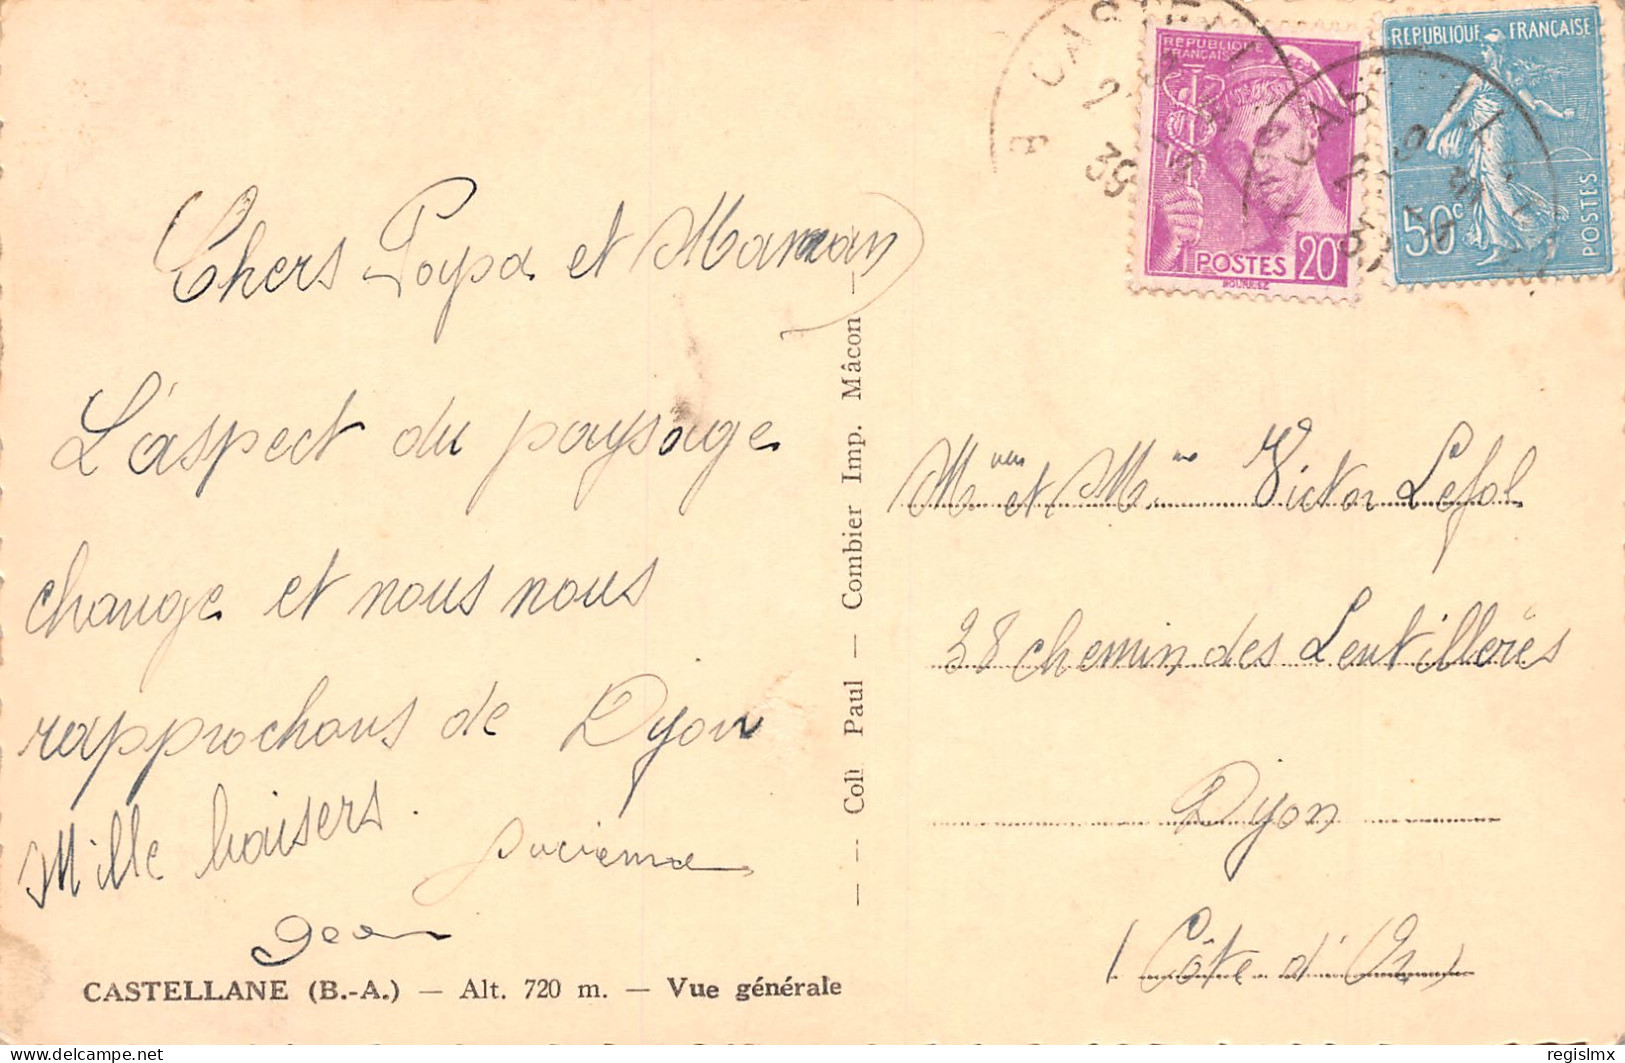 Chers Papa et Maman
L'aspect du paysage
change et nous nous
rapprochons de Dijon
Mille baisers.
Lucienne
Jean
CASTELLANE (B.-A.) — Alt. 720 m. — Vue générale
— — Coll Paul — Combier Imp. Mâcon —
RÉPUBLIQUE
FRANÇAISE
POSTES 20c
RÉPUBLIQUE FRANÇAISE
50c
POSTES
39
Mr et Mme Victor Lefol
28 chemin des Lentillères
Dijon
(Côte d'Or)
delcampe.net
regislmx